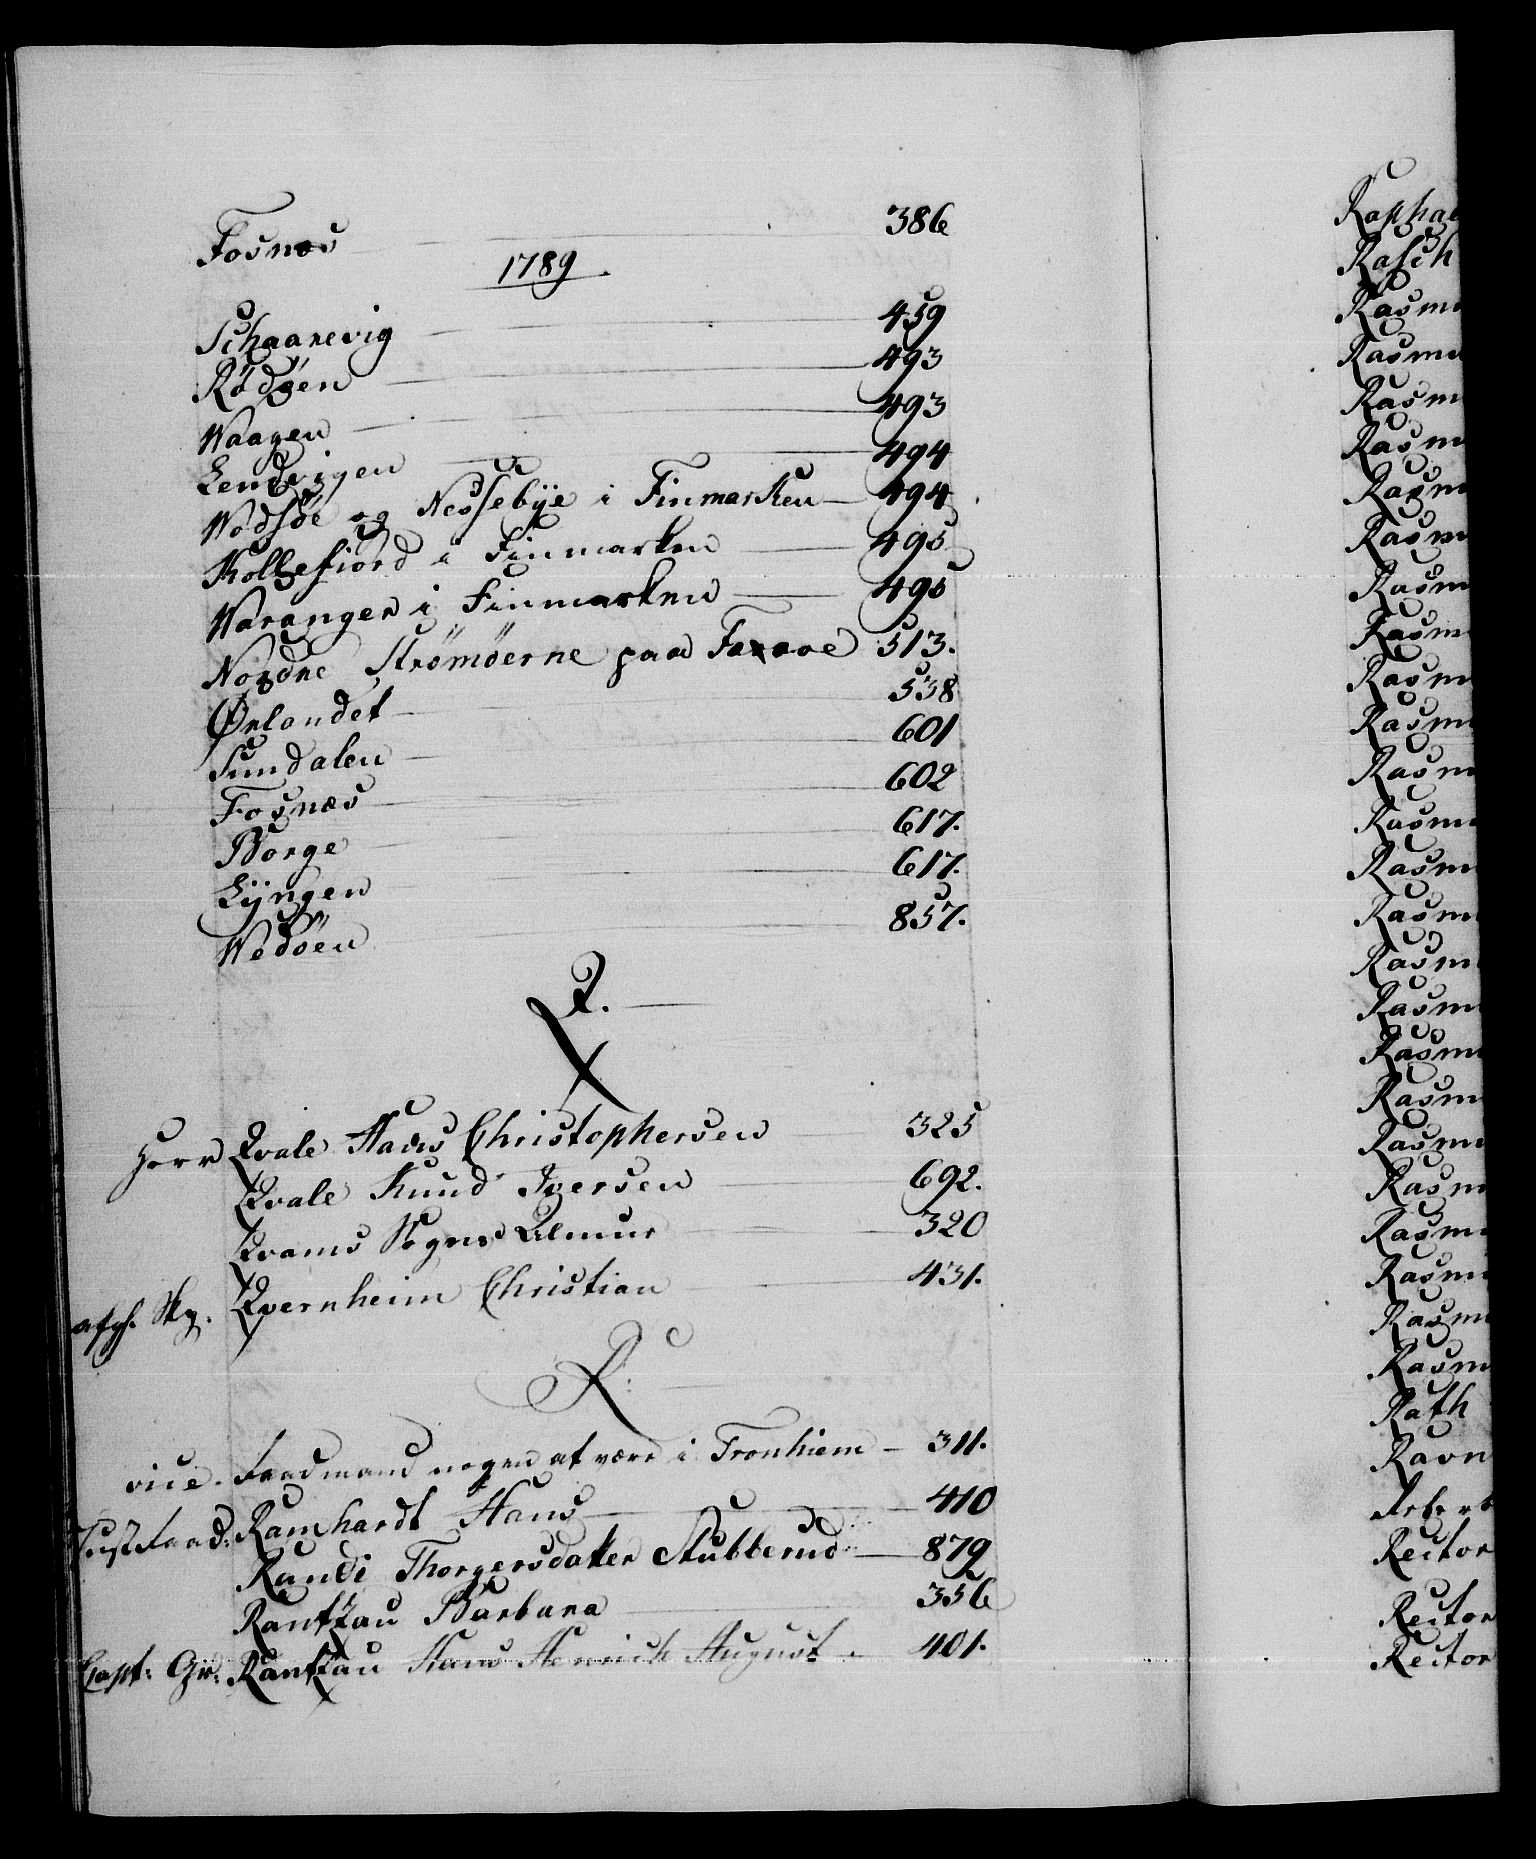 Fosnæs 386
1789.
Schaanevig 459
Rödöen 493
Waagen 493
Lendvigen 494
Wadsöe og Nessebÿe i Finmarken 494
Kollefiord i Finmarken 495
Waranger i Finmarken 495
Nordre Strömöerne paa Faröe 513.
Ørlandet 538
Sundalen 601
Fosnæs 602
Borge 617.
Lÿngen 617.
Wedöen 857.
Q.
Herr Qvale Hans Christophersen 325
Qvale Knud Iversen 692.
Qvams Sogns Almue 320
afg. Qvernheim Christian 431.
R:
vice. Raadmand nogen at være i Tronhiem 311.
Justitsraad: Ramhardt Hans 410
Randi Thorgersdatter Stubberud 879
Rantzau Barbara 356
Capt: Gr: Rantzau Hans Henrich August 401.
Rapha
Rasch
Rasm
Rasm
Rasm
Rasm
Rasm
Rasm
Rasm
Rasm
Rasm
Rasm
Rasm
Rasm
Rasm
Rasm
Rasm
Rasm
Rasm
Rasm
Rasm
Rasm
Rasm
Rasm
Rasm
Rasm
Rath
Ravn
Rector
Rector
Rector